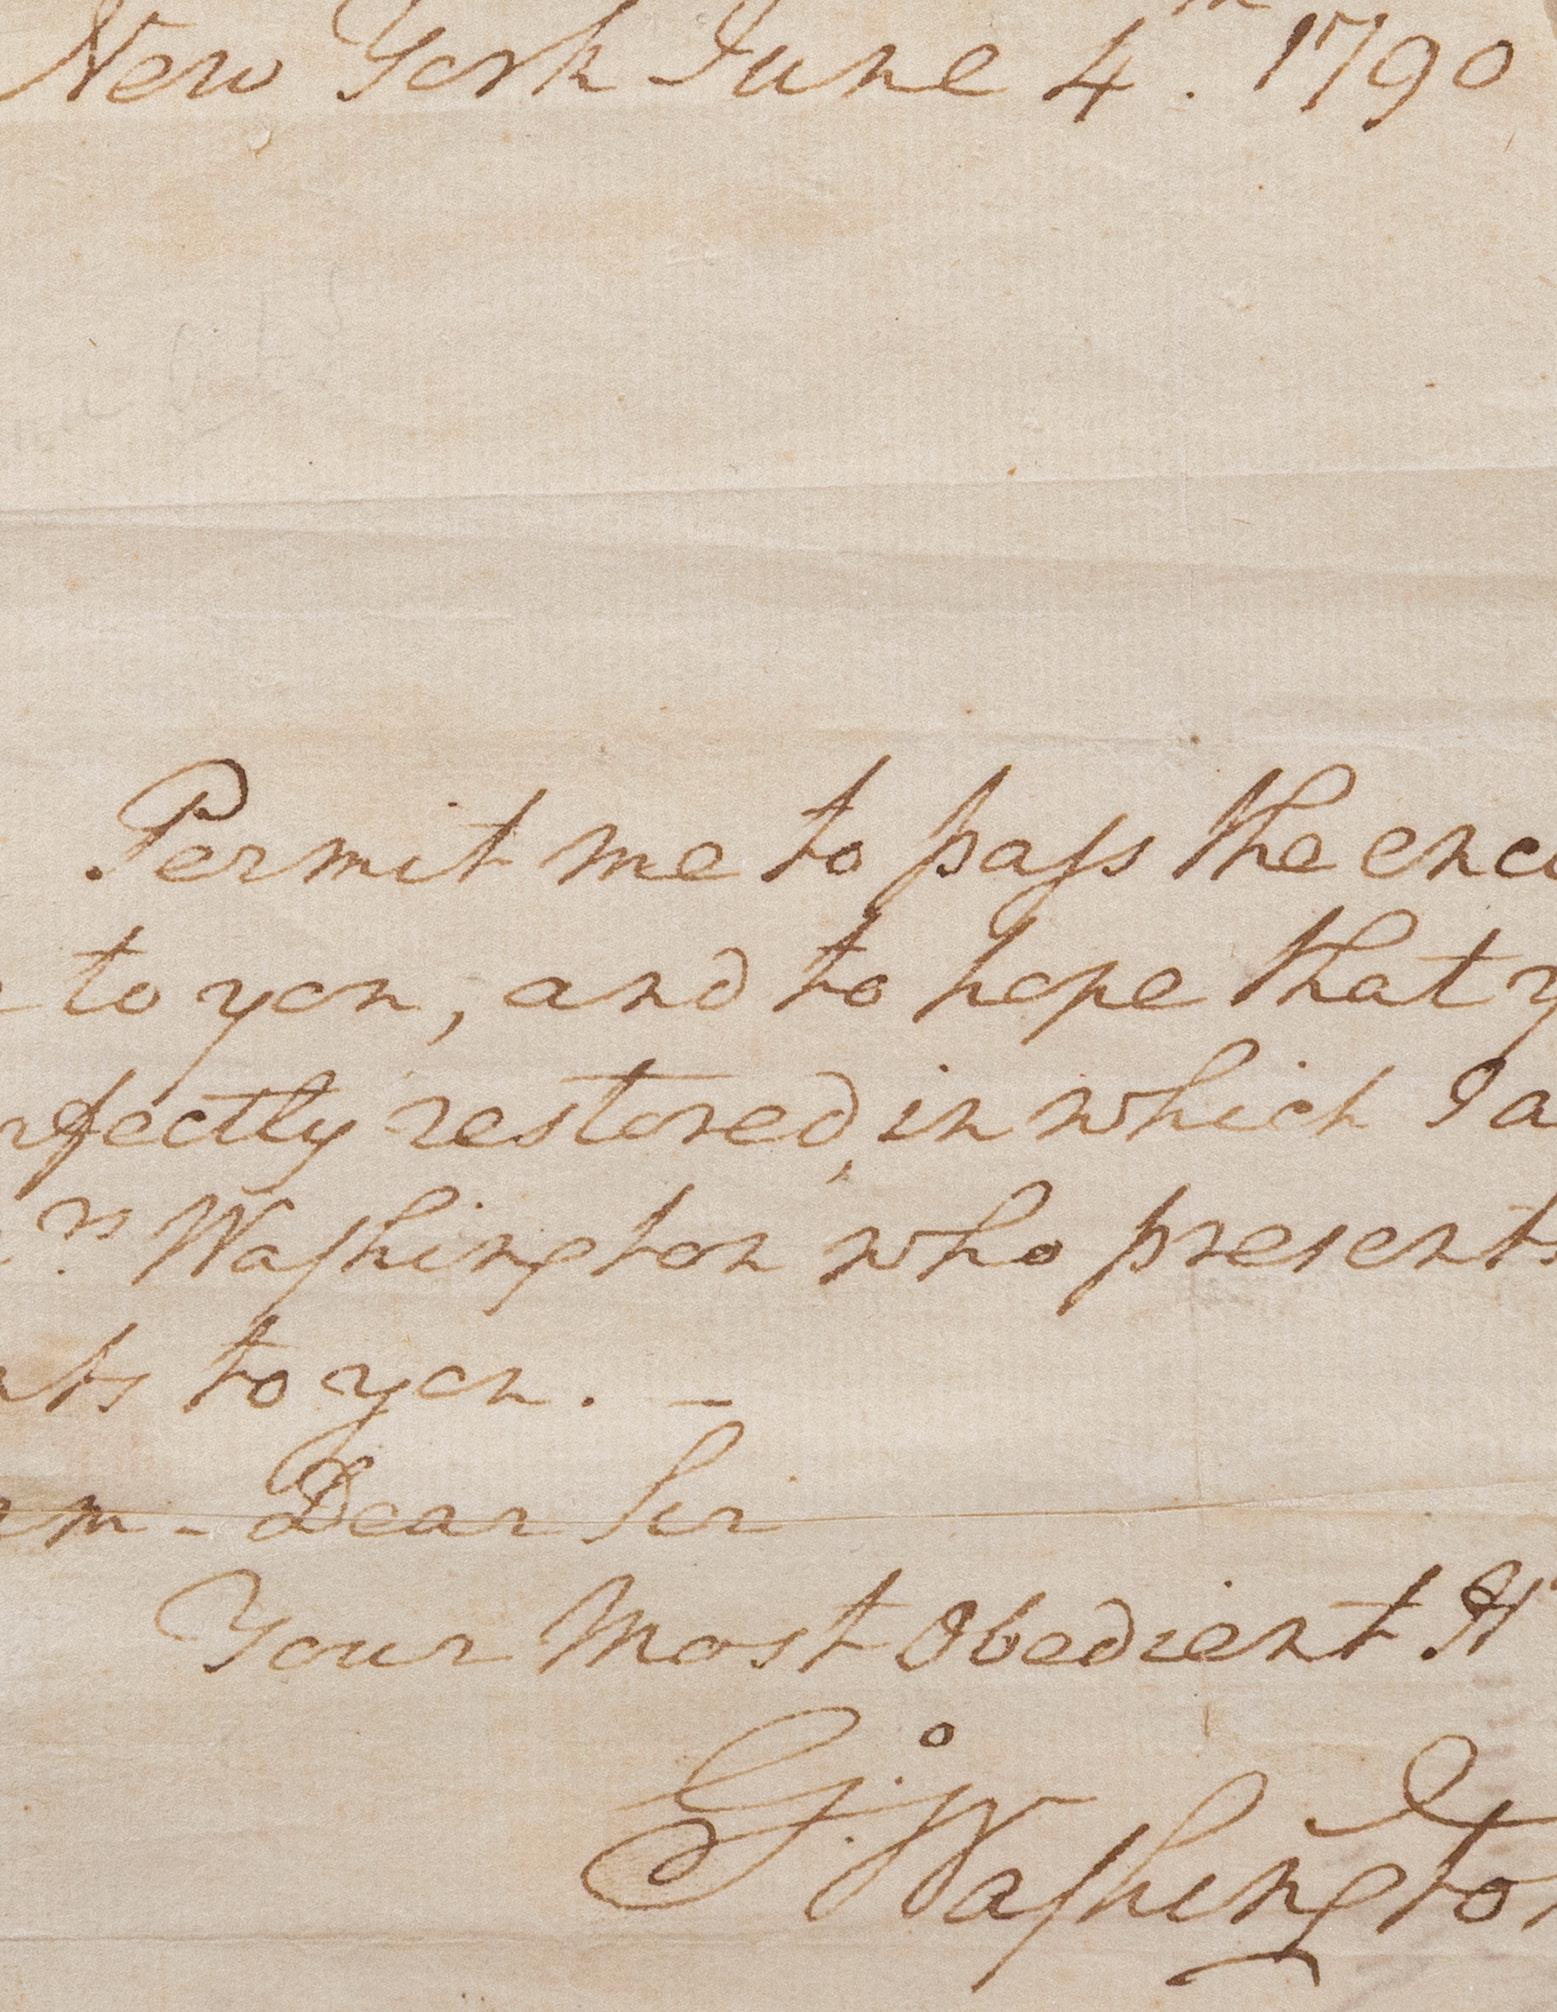 New York June 4th. 1790
Permit me to pass the enc
to you, and to hope that y
rfectly restored, in which I a
rs Washington who presents
nts to you. —
am - Dear Sir
Your Most Obedient H
Go: Washington